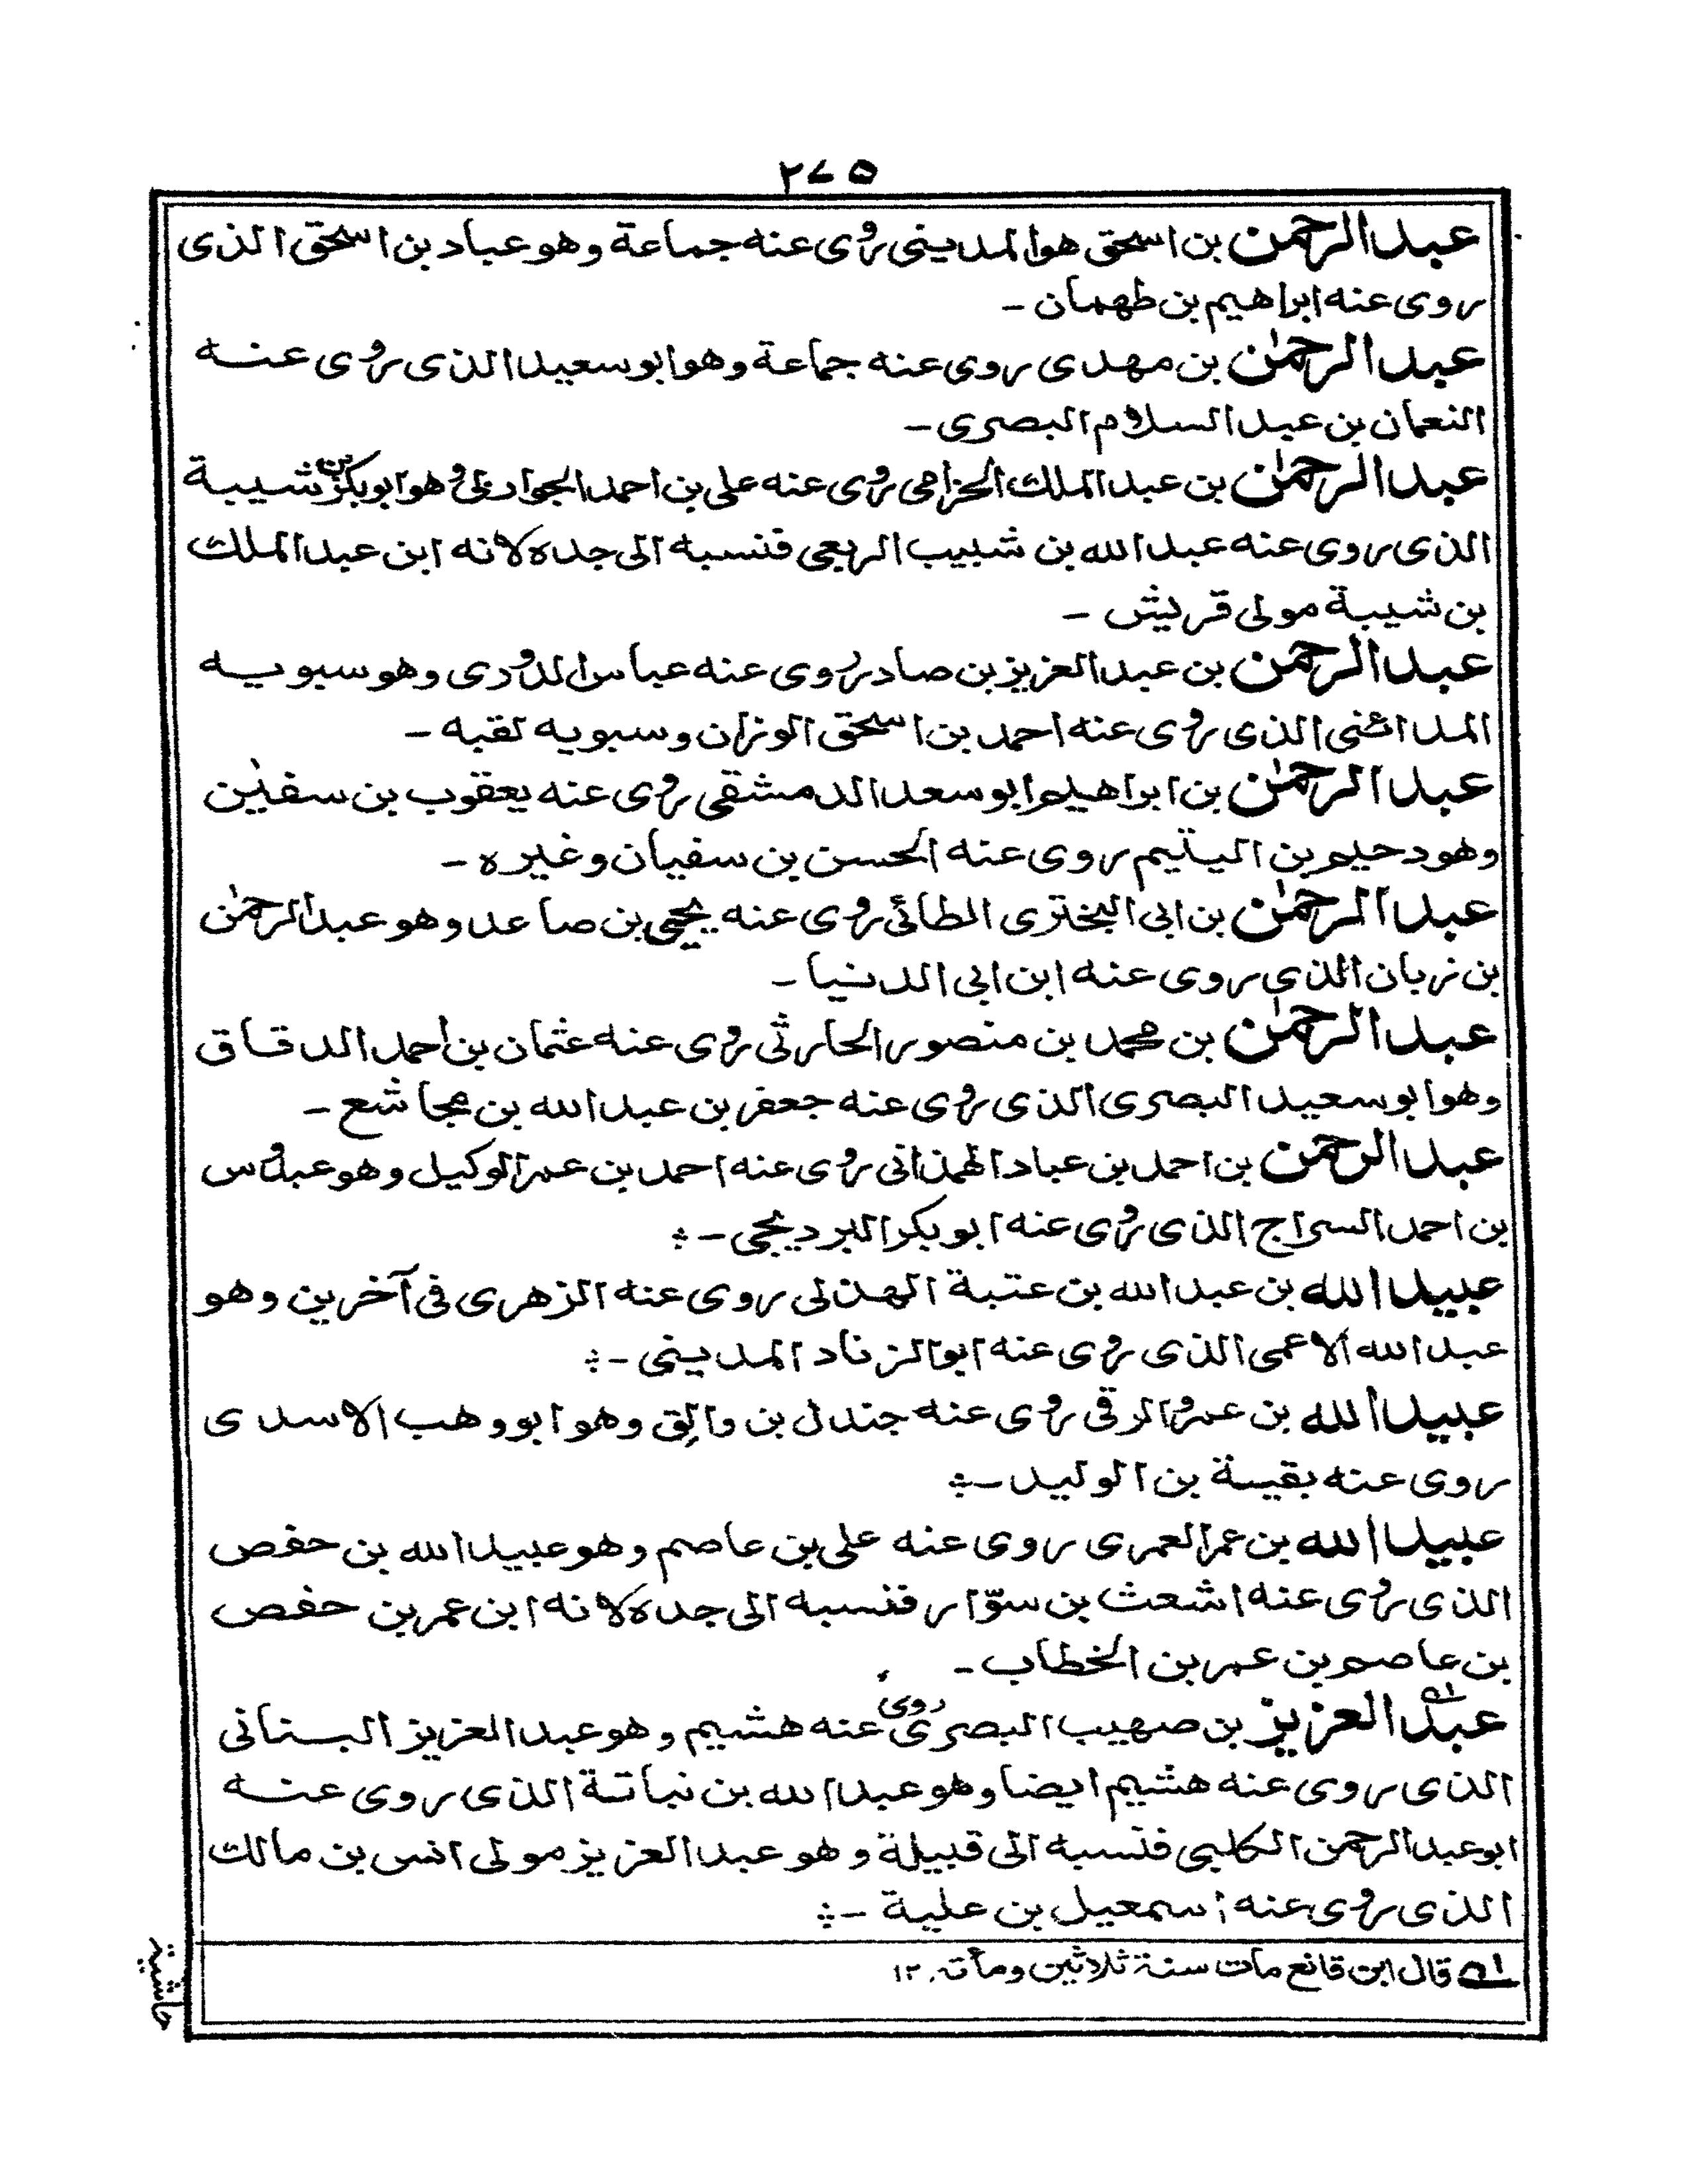 ٢٧٥
عبدالرحمن بن اسحق هوالمدينى روى عنه جماعة وهو عباد بن اسحق الذى
روى عنه ابراهيم بن طهمان ـ
عبدالرحمٰن بن مهدى روى عنه جماعة وهو ابو سعيد الذى روى عنه
النعمان بن عبدالسلام البصرى ـ
عبدالرحمٰن بن عبدالملك الحزامى روى عنه على بن احمد الجواربى وهو ابوبكر بن شيبة
الذى روى عنه عبدالله بن شبيب الربعى فنسبه الى جده لانه ابن عبدالملك
بن شيبة مولى قريش ـ
عبدالرحمن بن عبدالعزيز بن صادر روى عنه عباس الدورى وهو سبويه
المدائنى الذى روى عنه احمد بن اسحق الوزان وسبويه لقبه ـ
عبدالرحمٰن بن ابراهيم ابو سعد الدمشقى روى عنه يعقوب بن سفيٰن
وهو دحيم بن اليتيم روى عنه الحسن بن سفيان وغيره ـ
عبدالرحمٰن بن ابى البخترى الطائى روى عنه يحيى بن صاعد وهو عبدالرحمٰن
بن زبان الذى روى عنه ابن ابى الدنيا ـ
عبدالرحمٰن بن محمد بن منصور الحارثى روى عنه عثمان بن احمد الدقاق
وهو ابو سعيد البصرى الذى روى عنه جعفر بن عبدالله بن مجاشع ـ
عبدالرحمن بن احمد بن عباد الهمذانى روى عنه احمد بن عمر الوكيل وهو عبدوس
بن احمد السراج الذى روى عنه ابو بكر البرديجى ـ
عبيدالله بن عبدالله بن عتبة الهذلى روى عنه الزهرى فى آخرين وهو
عبدالله الاعمى الذى روى عنه ابوالزناد المدينى ـ
عبيدالله بن عمرو الرقى روى عنه جندل بن والق وهو ابو وهب الاسدى
روى عنه بقية بن الوليد ـ
عبيدالله بن عمر العمرى روى عنه على بن عاصم وهو عبيدالله بن حفص
الذى روى عنه اشعث بن سوّار فنسبه الى جده لانه ابن عمر بن حفص
بن عاصم بن عمر بن الخطاب ـ
عبدالعزيز بن صهيب البصرى روى عنه هشيم وهو عبدالعزيز البنانى
الذى روى عنه هشيم ايضا وهو عبدالله بن نباتة الذى روى عنه
ابو عبدالرحمن الكلبى فنسبه الى قبيلة وهو عبدالعزيز مولى انس بن مالك
الذى روى عنه اسمعيل بن علية ـ
حاشية
١ قال ابن قانع مات سنة ثلاثين ومأته ١٢